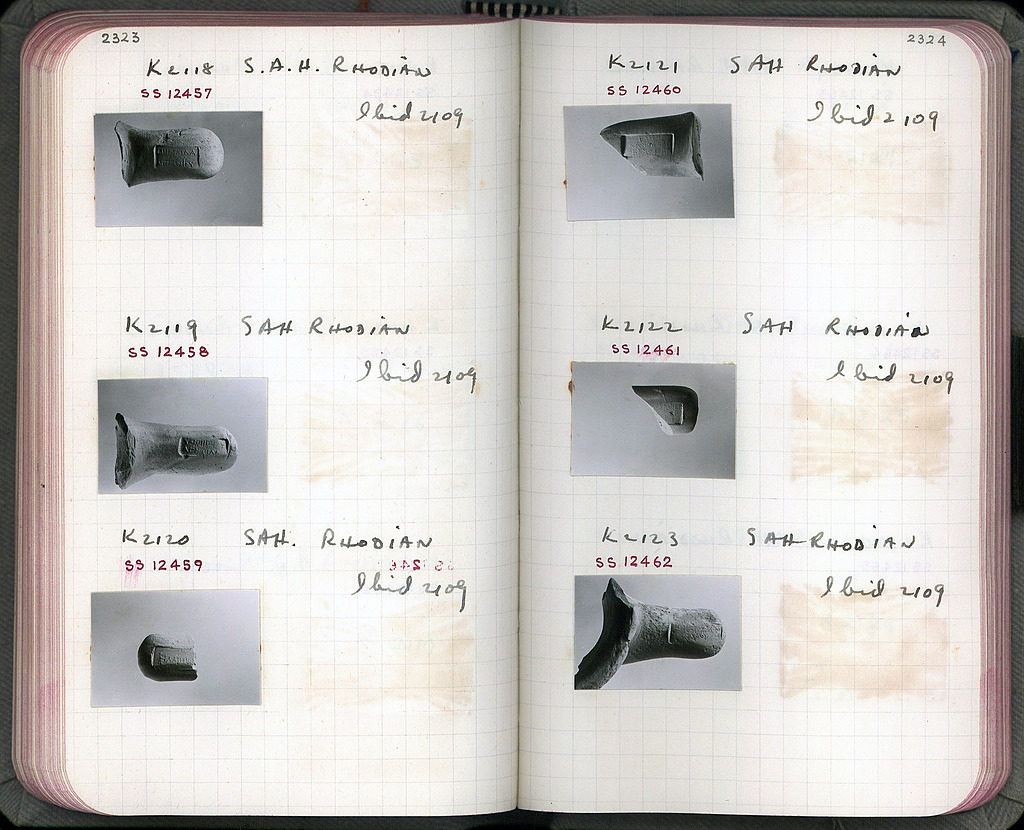 2323
K2118 S.A.H. RHODIAN
SS 12457
Ibid 2109
K2119 SAH RHODIAN
SS 12458
Ibid 2109
K2120 SAH. RHODIAN
SS 12459
Ibid 2109
2324
K2121 SAH RHODIAN
SS 12460
Ibid 2109
K2122 SAH RHODIAN
SS 12461
Ibid 2109
K2123 SAH RHODIAN
SS 12462
Ibid 2109